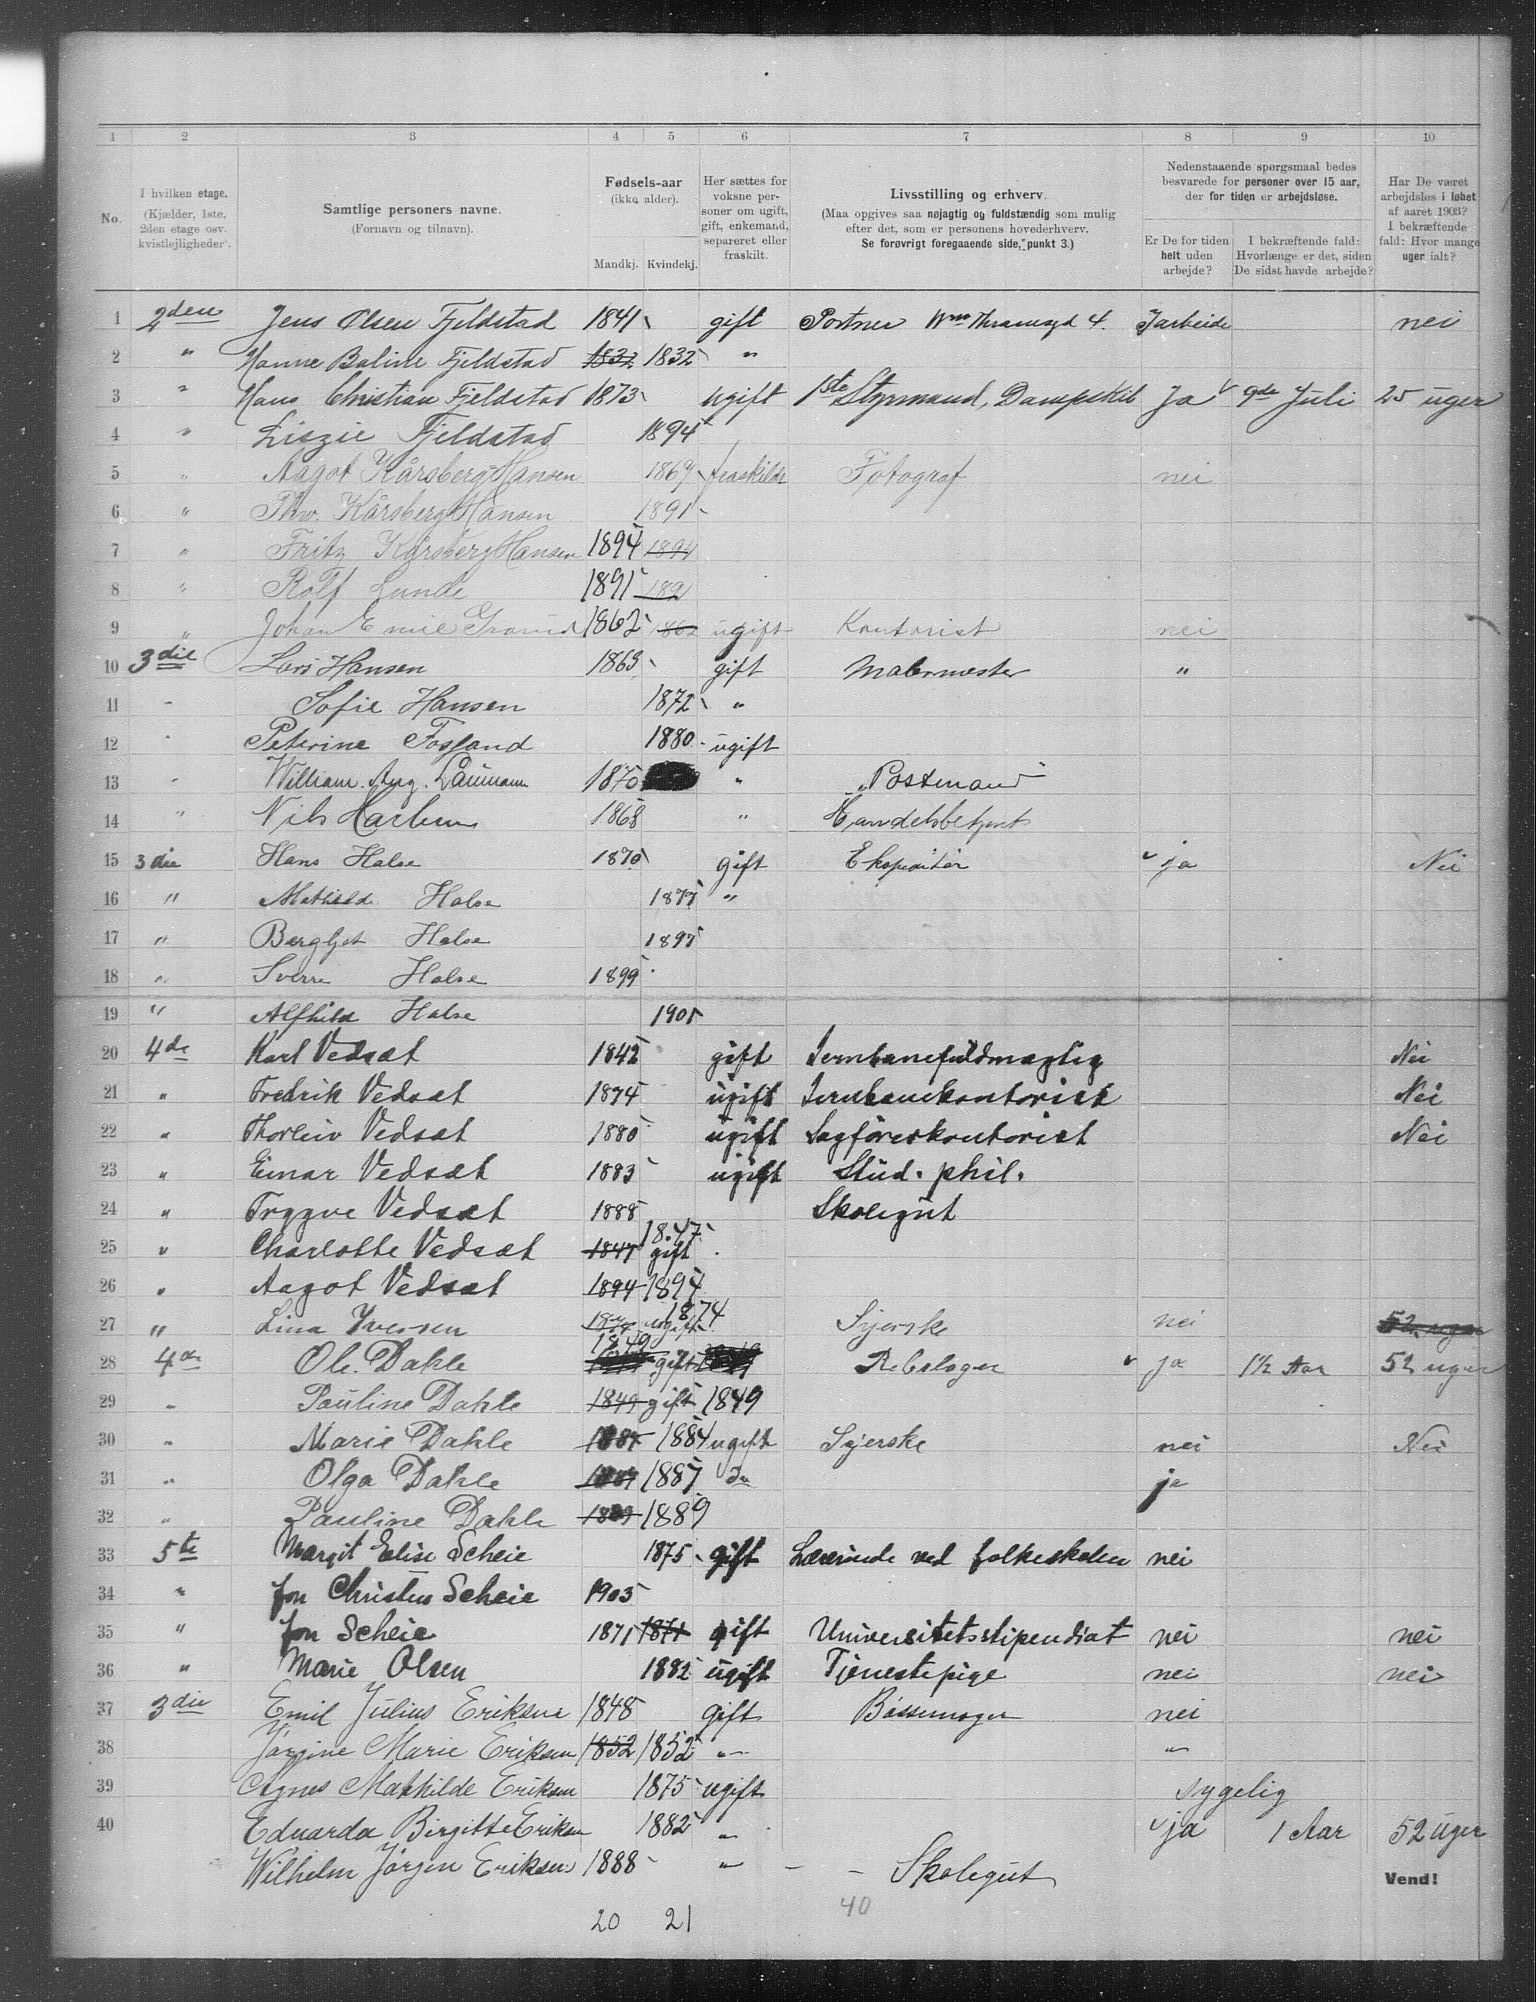 1 2 3 4 5 6 7 8 9 10
No.
I hvilken etage. (Kjælder, 1ste, 2den etage osv. kvistleiligheder).
Samtlige personers navne. (Fornavn og tilnavn).
Fødsels-aar (ikke alder). Mandkj. Kvindekj.
Her sættes for voksne personer om ugift, gift, enkemand, separeret eller fraskilt.
Livsstilling og erhverv. (Maa opgives saa nøjagtig og fuldstændig som mulig efter det, som er personens hovederhverv. Se forøvrigt foregaaende side, punkt 3.)
Nedenstaaende spørgsmaal bedes besvarede for personer over 15 aar, der for tiden er arbejdsløse.
Er De for tiden helt uden arbejde?
I bekræftende fald: Hvorlænge er det, siden De sidst havde arbejde?
Har De været arbejdsløs i løbet af aaret 1903? I bekræftende fald: Hvor mange uger ialt?
1 2den Jens Olsen Fjeldstad 1841 gift Portner Wm Thranesgd 4. I arbeide nei
2 " Hanne Baline Fjeldstad 1832 1832 "
3 " Hans Christian Fjeldstad 1873 ugift 1ste Styrmand, Dampskib Ja 9de Juli 25 uger
4 " Liszie Fjeldstad 1894
5 " Aagot Kårsberg Hansen 1869 fraskildt Fotograf nei
6 " Kårsberg Hansen 1891
7 " Fritz Kårsberg Hansen 1894 1894
8 " Rolf Lunde 1891 1891
9 " Johan Emil 1862 1862 ugift Kontorist nei
10 3die Lars Hansen 1863 gift Malermester "
11 " Sofie Hansen 1872 "
12 " Peterine Fossland 1880 ugift
13 " William. Aug. Laumann 1870 " Postmand
14 " Nils 1868 " Handelsbetjent
15 3die Hans Halse 1870 gift Ekspeditør ja Nei
16 " Mathild Halse 1877 "
17 " Bergljot Halse 1897
18 " Sverre Halse 1899
19 " Alfhild Halse 1901
20 4de Karl Vedsæt 1842 gift Jernbanefuldmægtig Nei
21 " Fredrik Vedsæt 1874 ugift Jernbanekontorist Nei
22 " Thorleiv Vedsæt 1880 ugift Sagførerkontorist Nei
23 " Einar Vedsæt 1883 ugift Stud. phil.
24 " Trygve Vedsæt 1888 Skolegut
25 " Charlotte Vedsæt 1847 1847 gift
26 " Aagot Vedsæt 1894 1894
27 " Lina Iversen 1874 1874 ugift Syerske nei 52 uger
28 4de Ole Dahle 1849 gift Rebslager ja 1½ Aar 52 uger
29 " Pauline Dahle 1849 gift 1849
30 " Marie Dahle 1884 1884 ugift Syerske nei Nei
31 " Olga Dahle 1887 1887 do ja
32 " Pauline Dahle 1889 1889
33 5te Margit Elise Scheie 1875 gift Lærerinde ved folkeskolen nei
34 " Jon Christen Scheie 1903
35 " Jon Scheie 1871 1871 gift Universitetsstipendiat nei nei
36 " Marie Olsen 1882 ugift Tjenestepige nei nei
37 3die Emil Julius Eriksen 1848 gift Bøssemager nei
38 Jørgine Marie Eriksen 1852 1852 " "
39 Agnes Mathilde Eriksen 1875 ugift sygelig
40 Eduarda Birgitte Eriksen 1882 " ja 1 Aar 52 uger
Wilhelm Jørgen Eriksen 1888 " - - Skolegut
Vend!
20 21 40